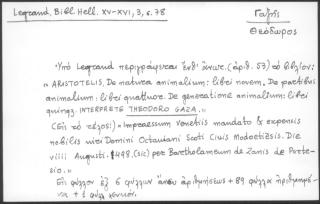 Legrand, Bibl. Hell. XV-XVI, 3, σ. 78.
Γαζῆς
Θεόδωρος
Ὑπὸ Legrand περιγράφεται ἔνθ' ἄνωτ. (ἀριθ. 57) τὸ βιβλίον:
"ARISTOTELIS, De natura animalium: libri novem. De partibus
animalium: libri quattuor. De generatione animalium: libri
quinqz. INTERPRETE THEODORO GAZA."
(Ἐπὶ τοῦ τέλους:) "Impraessum Venetiis mandato & expensis
nobilis viri Domini Octaviani Scoti Civis Modoetiēsis. Die
viiii Augusti. 1498. (sic) per Bartholameum de Zanis de Porte-
sio."
Εἰς φύλλον ἐξ 6 φύλλων ἄνευ ἀριθμήσεως + 89 φύλλα ἠριθμημέ-
να + 1 φύλ. λευκόν.